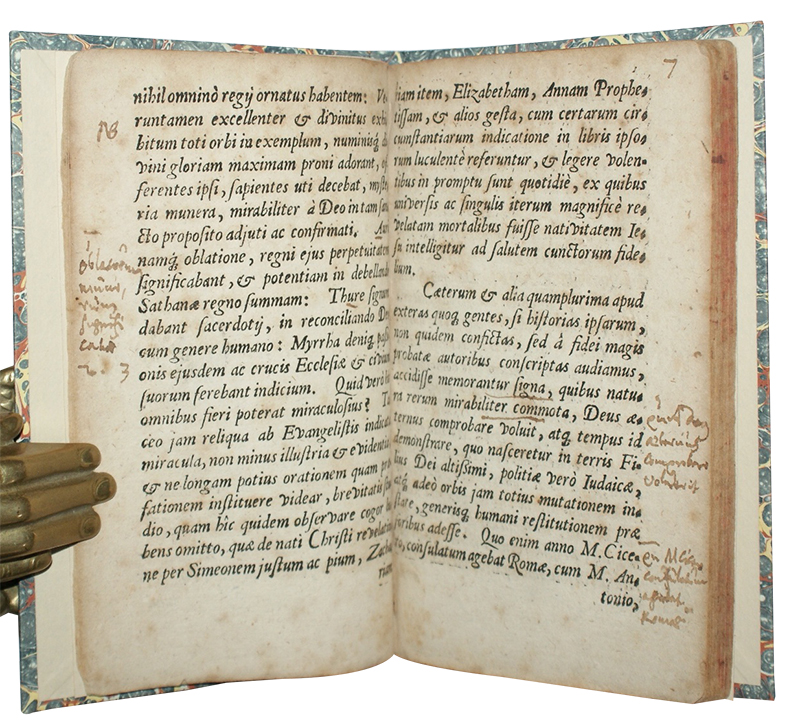 nihil omninò regij ornatus habentem: Ve
runtamen excellenter & divinitus exhi
bitum toti orbi in exemplum, numinisq́; di
vini gloriam maximam proni adorant, of
ferentes ipsi, sapientes uti decebat, myste
ria munera, mirabiliter à Deo in tam san
cto proposito adjuti ac confirmati.
namq́; oblatione, regni ejus perpetuitatem
significabant, & potentiam in debellando
Sathanæ regno summam: Thure signum
dabant sacerdotij, in reconciliando De
cum genere humano: Myrrha deniq́; passi
onis ejusdem ac crucis Ecclesiæ & civium
suorum ferebant indicium. Quid verò his
omnibus fieri poterat miraculosius? Ta
ceo jam reliqua ab Evangelistis indicata
miracula, non minus illustria & evidentia
& ne longam potius orationem quam præ
fationem instituere videar, brevitatis stu
dio, quam hîc quidem observare cogor lu
bens omitto, quæ de nati Christi revelatio
ne per Simeonem justum ac pium, Zacha
riam
7
riam item, Elizabetham, Annam Prophe-
tissam, & alios gesta, cum certarum cir-
cumstantiarum indicatione in libris ipso-
rum luculentè referuntur, & legere volen-
tibus in promptu sunt quotidiè, ex quibus
universis ac singulis iterum magnificè re-
velatam mortalibus fuisse nativitatem Ie-
su intelligitur ad salutem cunctorum fide-
lium.
Cæterum & alia quamplurima apud
exteras quoq́; gentes, si historias ipsarum,
non quidem confictas, sed à fidei magis
probatæ autoribus conscriptas audiamus,
accidisse memorantur signa, quibus natu-
ra rerum mirabiliter commota, Deus æ-
ternus comprobare voluit, atq́; tempus id
demonstrare, quo nasceretur in terris Fi-
lius Dei altissimi, politiæ verò Iudaicæ,
atq́; adeò orbis jam totius mutationem in-
stare, generisq́; humani restitutionem præ
foribus adesse. Quo enim anno M. Cice-
ro, consulatum agebat Romæ, cum M. An-
tonio,